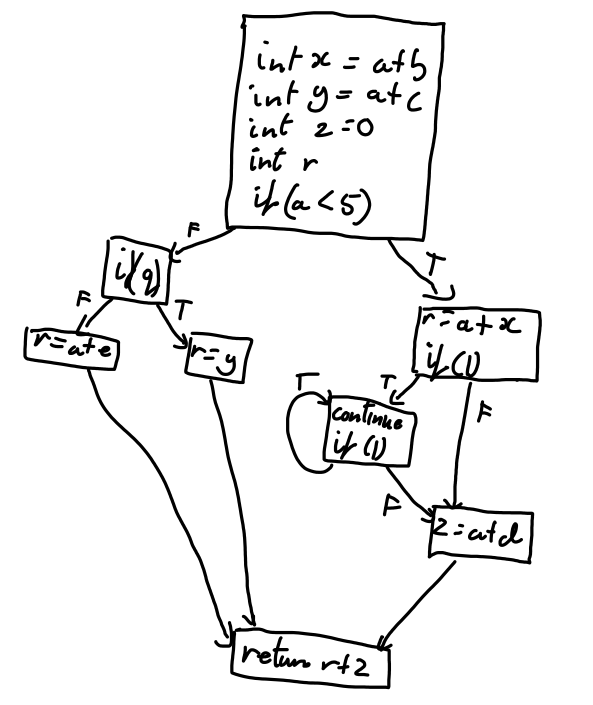 int x = a+b
int y = a+c
int z=0
int r
if(a<5)
F
T
if(q)
F
T
r=a+e
r=y
r=a+x
if(1)
T
F
T
continue
if(1)
F
z=a+d
return r+z